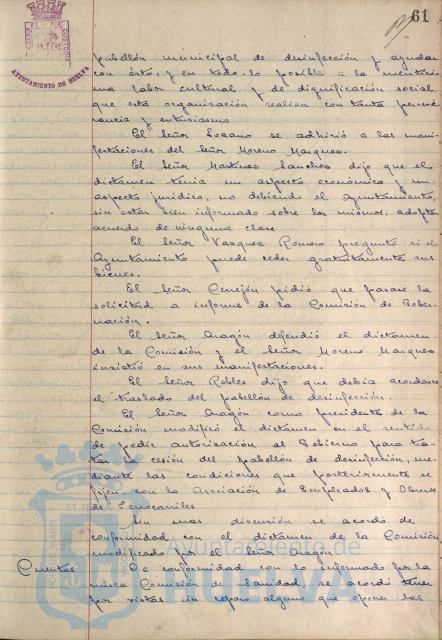 61
AYUNTAMIENTO DE HUELVA
pabellón municipal de desinfección y ayudar
con ésto, y en todo lo posible a la meritísi
ma labor cultural y de dignificación social
que esta organización realiza con tanta perseve
rancia y entusiasmo
El Señor Lozano se adhirió a las mani-
festaciones del Señor Moreno Marquez.
El Señor Martinez Sanchez dijo que el
dictamen tenia un aspecto económico y un
aspecto juridico, no debiendo el Ayuntamiento,
sin estar bien informado sobre los mismos, adoptar
acuerdo de ninguna clase
El Señor Vazquez Romero preguntó si el
Ayuntamiento puede ceder gratuitamente sus
bienes.
El Señor Cerejón pidió que pasase la
solicitud a informe de la Comisión de Gober-
nación.
El Señor Aragón defendió el dictamen
de la Comisión y el Señor Moreno Marquez
insistió en sus manifestaciones.
El Señor Robles dijo que debia acordarse
el traslado del pabellón de desinfección.
El Señor Aragón como presidente de la
Comisión modificó el dictamen en el sentido
de pedir autorización al Gobierno para tra-
tar la cesión del pabellón de desinfección, me-
diante las condiciones que posteriormente se
fijen con la Asociación de Empleados y Obreros
de Ferrocarriles
Sin mas discusión se acordó de
conformidad con el dictamen de la Comisión
modificado por el Señor Aragón
Cuentas De conformidad con lo informado por la
misma Comisión de Sanidad, se acordó tener
por vistas sin reparo alguno que oponer las
Ayuntamiento de
HUELVA